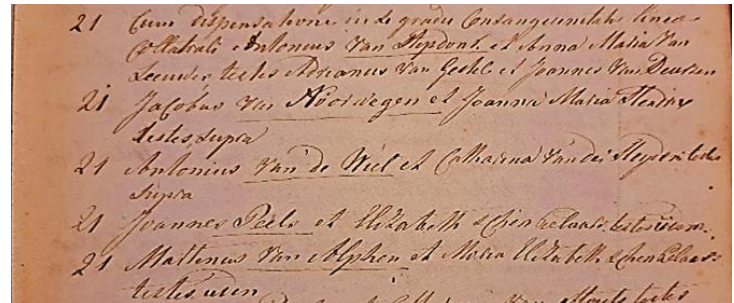 21 Cum dispensatione in 2e gradu Consanguinitatis linea
Collaterali Antonius Van Heydont et Anna Maria Van
Leender testes Adrianus Van Gestel et Joannes Van Deursen
21 Jacobus van Noorwegen et Joanna Maria Hendrix
testes supra
21 Antonius Van de Wiel et Catharina Van der Heyden testes
supra
21 Joannes Peels et Elizabeth Schenkelaars testes iidem
21 Martinus Van Alphen et Maria Elizabeth Schenkelaars
testes
Van